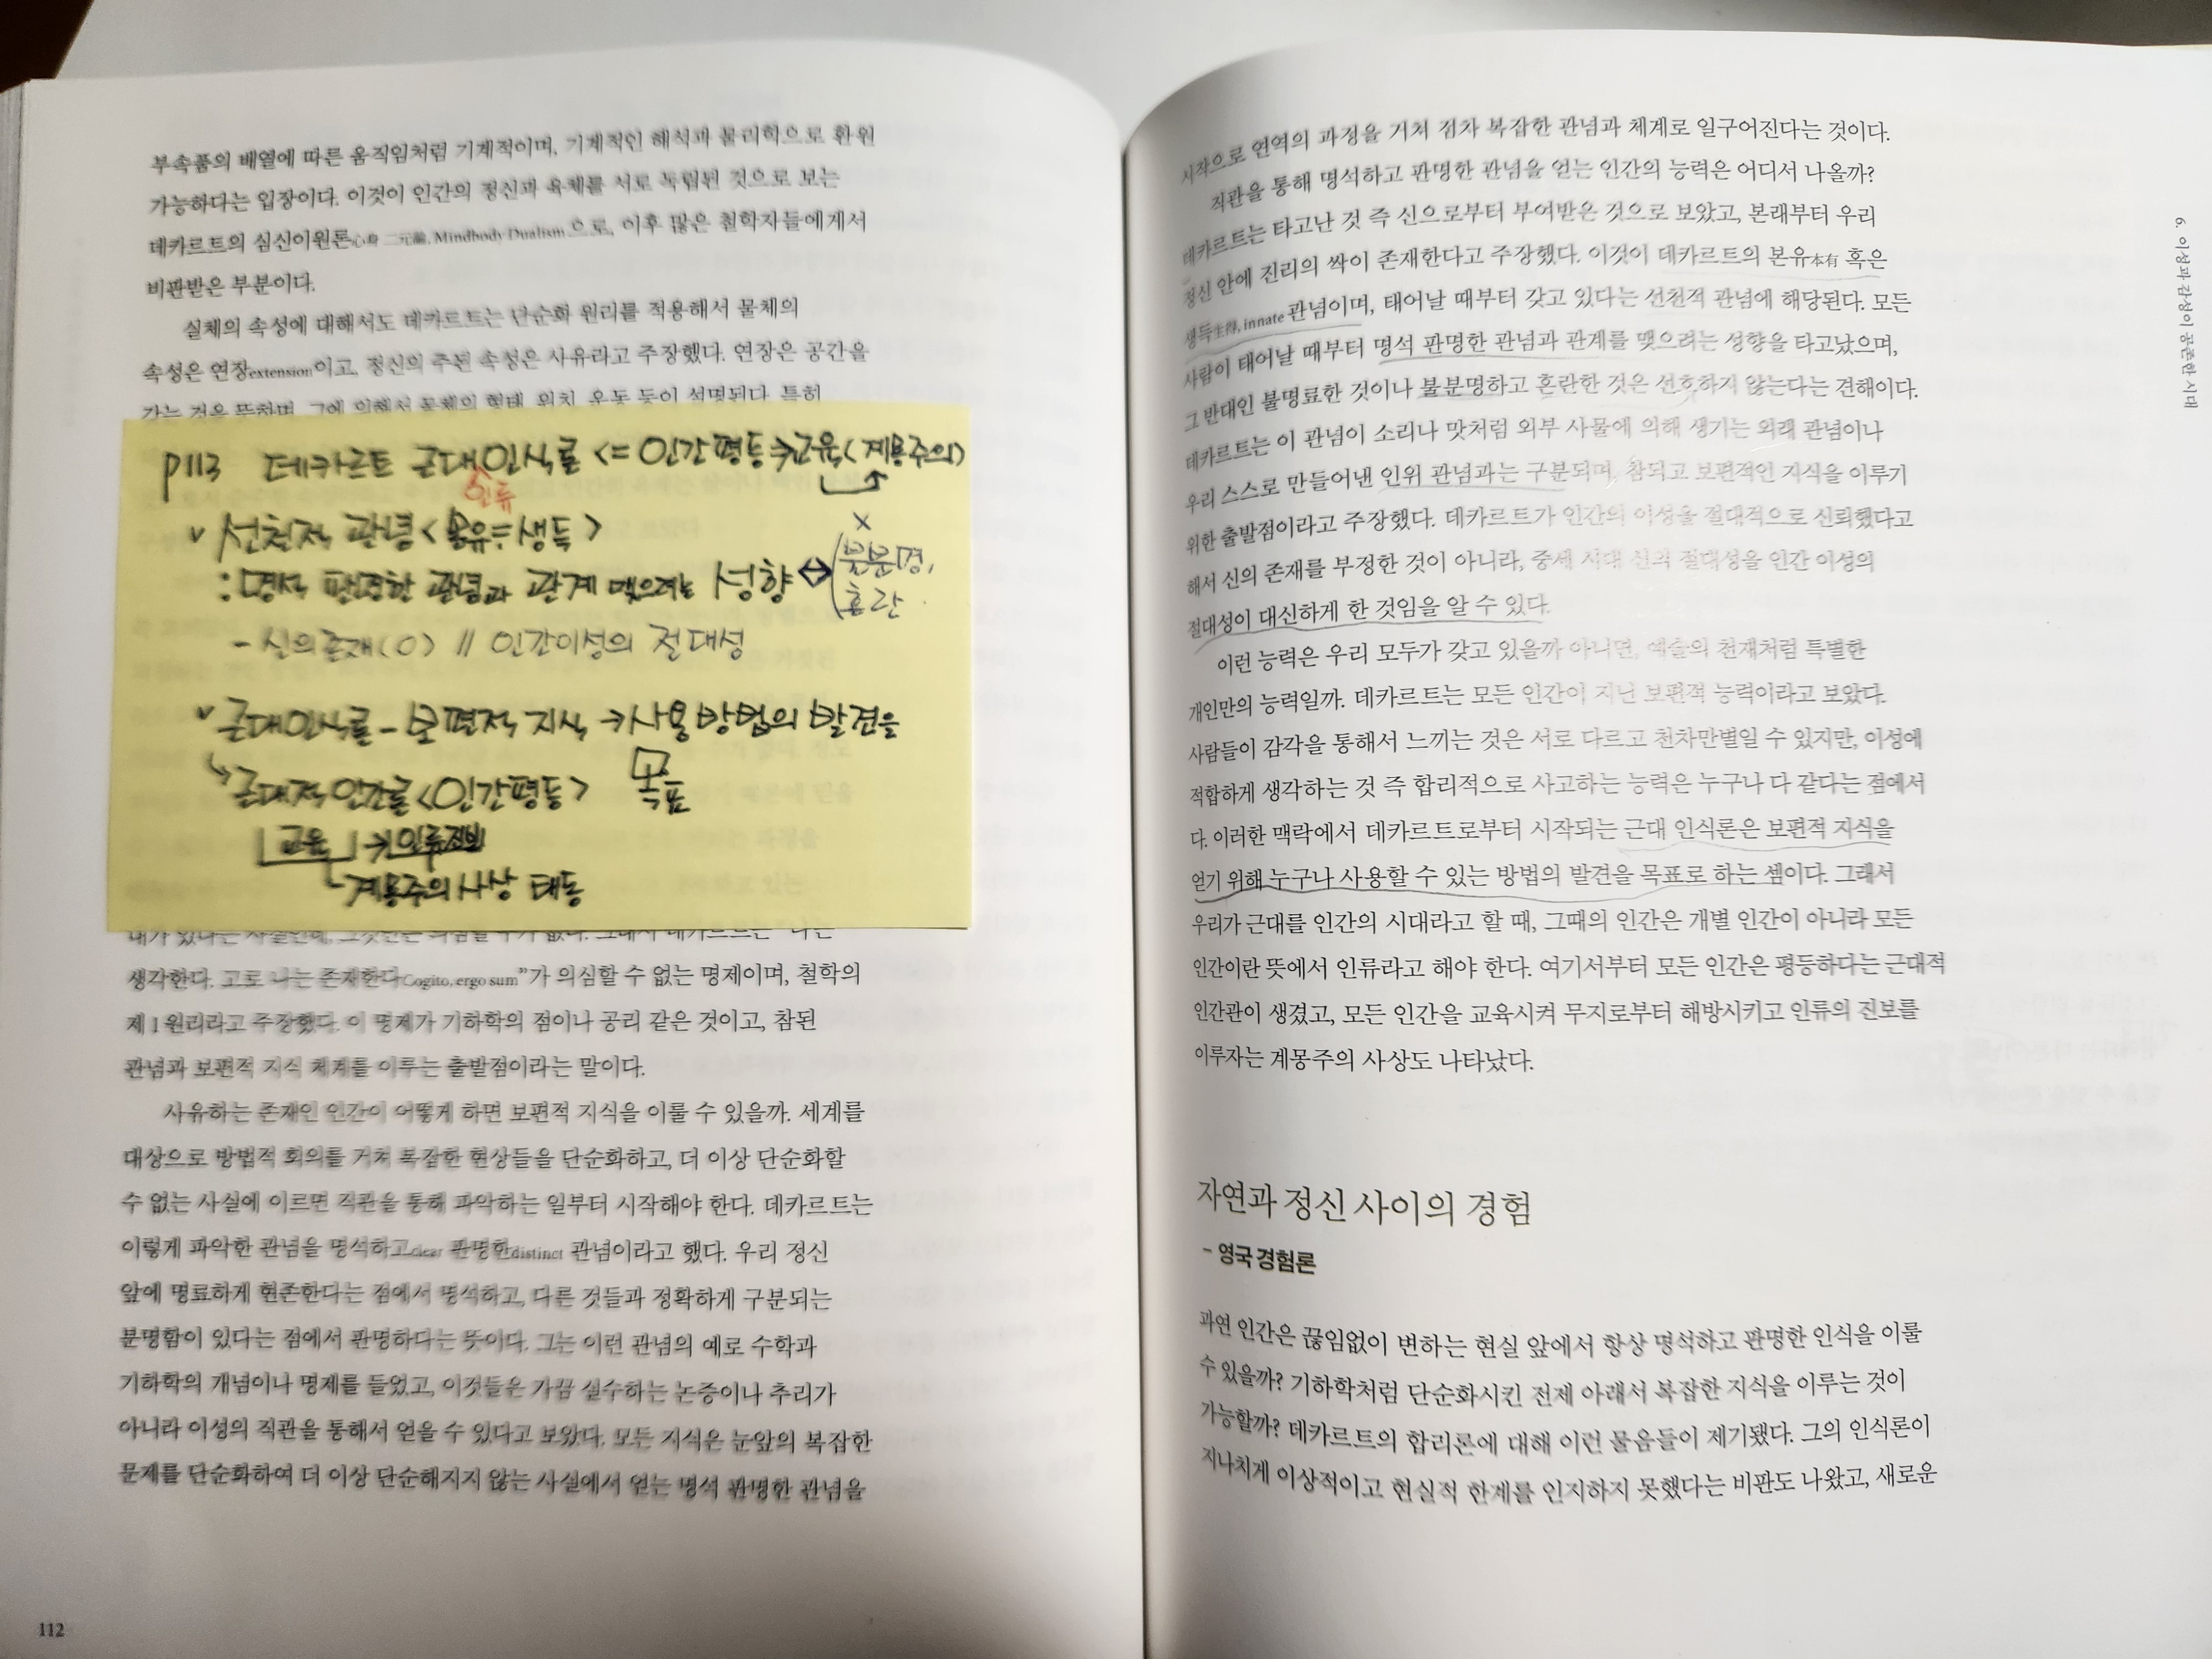 부속품의 배열에 따른 움직임처럼 기계적이며, 기계적인 해석과 물리학으로 환원
가능하다는 입장이다. 이것이 인간의 정신과 육체를 서로 독립된 것으로 보는
데카르트의 심신이원론心身 二元論, Mindbody Dualism으로, 이후 많은 철학자들에게서
비판받은 부분이다.
실체의 속성에 대해서도 데카르트는 단순화 원리를 적용해서 물체의
속성은 연장extension이고, 정신의 주된 속성은 사유라고 주장했다. 연장은 공간을
갖는 것을 뜻하며, 그에 의해서 물체의 형태, 위치, 운동 등이 설명된다. 특히
p113 데카르트 근대인식론 <= 인간평등→교육(계몽주의)
인류
v 선천적 관념<본유=생득>
: 명석 판명한 관념과 관계 맺으려는 성향 ↔ (불분명,
x
혼란
- 신의존재(O) // 인간이성의 절대성
v 근대인식론 - 보편적 지식 → 사용방법의 발견을
목표
↳ 근대적 인간론<인간평등>
교육 → 인류진보
계몽주의 사상 태동
내가 있다는 사실인데, 그것만은 의심할 수가 없다. 그래서 데카르트는 "나는
생각한다. 고로 나는 존재한다Cogito, ergo sum"가 의심할 수 없는 명제이며, 철학의
제1원리라고 주장했다. 이 명제가 기하학의 점이나 공리 같은 것이고, 참된
관념과 보편적 지식 체계를 이루는 출발점이라는 말이다.
사유하는 존재인 인간이 어떻게 하면 보편적 지식을 이룰 수 있을까. 세계를
대상으로 방법적 회의를 거쳐 복잡한 현상들을 단순화하고, 더 이상 단순화할
수 없는 사실에 이르면 직관을 통해 파악하는 일부터 시작해야 한다. 데카르트는
이렇게 파악한 관념을 명석하고clear 판명한distinct 관념이라고 했다. 우리 정신
앞에 명료하게 현존한다는 점에서 명석하고, 다른 것들과 정확하게 구분되는
분명함이 있다는 점에서 판명하다는 뜻이다. 그는 이런 관념의 예로 수학과
기하학의 개념이나 명제를 들었고, 이것들은 가끔 실수하는 논증이나 추리가
아니라 이성의 직관을 통해서 얻을 수 있다고 보았다. 모든 지식은 눈앞의 복잡한
문제를 단순화하여 더 이상 단순해지지 않는 사실에서 얻는 명석 판명한 관념을
112
시작으로 연역의 과정을 거쳐 점차 복잡한 관념과 체계로 일구어진다는 것이다.
직관을 통해 명석하고 판명한 관념을 얻는 인간의 능력은 어디서 나올까?
데카르트는 타고난 것 즉 신으로부터 부여받은 것으로 보았고, 본래부터 우리
정신 안에 진리의 싹이 존재한다고 주장했다. 이것이 데카르트의 본유本有 혹은
생득生得, innate 관념이며, 태어날 때부터 갖고 있다는 선천적 관념에 해당된다. 모든
사람이 태어날 때부터 명석 판명한 관념과 관계를 맺으려는 성향을 타고났으며,
그 반대인 불명료한 것이나 불분명하고 혼란한 것은 선호하지 않는다는 견해이다.
데카르트는 이 관념이 소리나 맛처럼 외부 사물에 의해 생기는 외래 관념이나
우리 스스로 만들어낸 인위 관념과는 구분되며, 참되고 보편적인 지식을 이루기
위한 출발점이라고 주장했다. 데카르트가 인간의 이성을 절대적으로 신뢰했다고
해서 신의 존재를 부정한 것이 아니라, 중세 시대 신의 절대성을 인간 이성의
절대성이 대신하게 한 것임을 알 수 있다.
이런 능력은 우리 모두가 갖고 있을까 아니면, 예술의 천재처럼 특별한
개인만의 능력일까. 데카르트는 모든 인간이 지닌 보편적 능력이라고 보았다.
사람들이 감각을 통해서 느끼는 것은 서로 다르고 천차만별일 수 있지만, 이성에
적합하게 생각하는 것 즉 합리적으로 사고하는 능력은 누구나 다 같다는 점에서
다. 이러한 맥락에서 데카르트로부터 시작되는 근대 인식론은 보편적 지식을
얻기 위해 누구나 사용할 수 있는 방법의 발견을 목표로 하는 셈이다. 그래서
우리가 근대를 인간의 시대라고 할 때, 그때의 인간은 개별 인간이 아니라 모든
인간이란 뜻에서 인류라고 해야 한다. 여기서부터 모든 인간은 평등하다는 근대적
인간관이 생겼고, 모든 인간을 교육시켜 무지로부터 해방시키고 인류의 진보를
이루자는 계몽주의 사상도 나타났다.
자연과 정신 사이의 경험
- 영국 경험론
과연 인간은 끊임없이 변하는 현실 앞에서 항상 명석하고 판명한 인식을 이룰
수 있을까? 기하학처럼 단순화시킨 전제 아래서 복잡한 지식을 이루는 것이
가능할까? 데카르트의 합리론에 대해 이런 물음들이 제기됐다. 그의 인식론이
지나치게 이상적이고 현실적 한계를 인지하지 못했다는 비판도 나왔고, 새로운
6. 이성과 감성이 공존한 시대